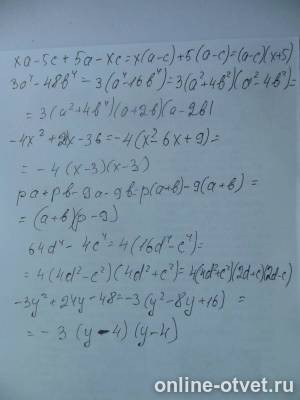 xa-5c+5a-xc=x(a-c)+5(a-c)=(a-c)(x+5)
3a⁴-48b⁴=3(a⁴-16b⁴)=3(a²+4b²)(a²-4b²)=
=3(a²+4b²)(a+2b)(a-2b)
-4x²+24x-36=-4(x²-6x+9)=
=-4(x-3)(x-3)
pa+pb-9a-9b=p(a+b)-9(a+b)=
=(a+b)(p-9)
64d⁴-4c⁴=4(16d⁴-c⁴)=
=4(4d²-c²)(4d²+c²)=4(4d²+c²)(2d+c)(2d-c)
-3y²+24y-48=-3(y²-8y+16)=
=-3(y-4)(y-4)
online-otvet.ru